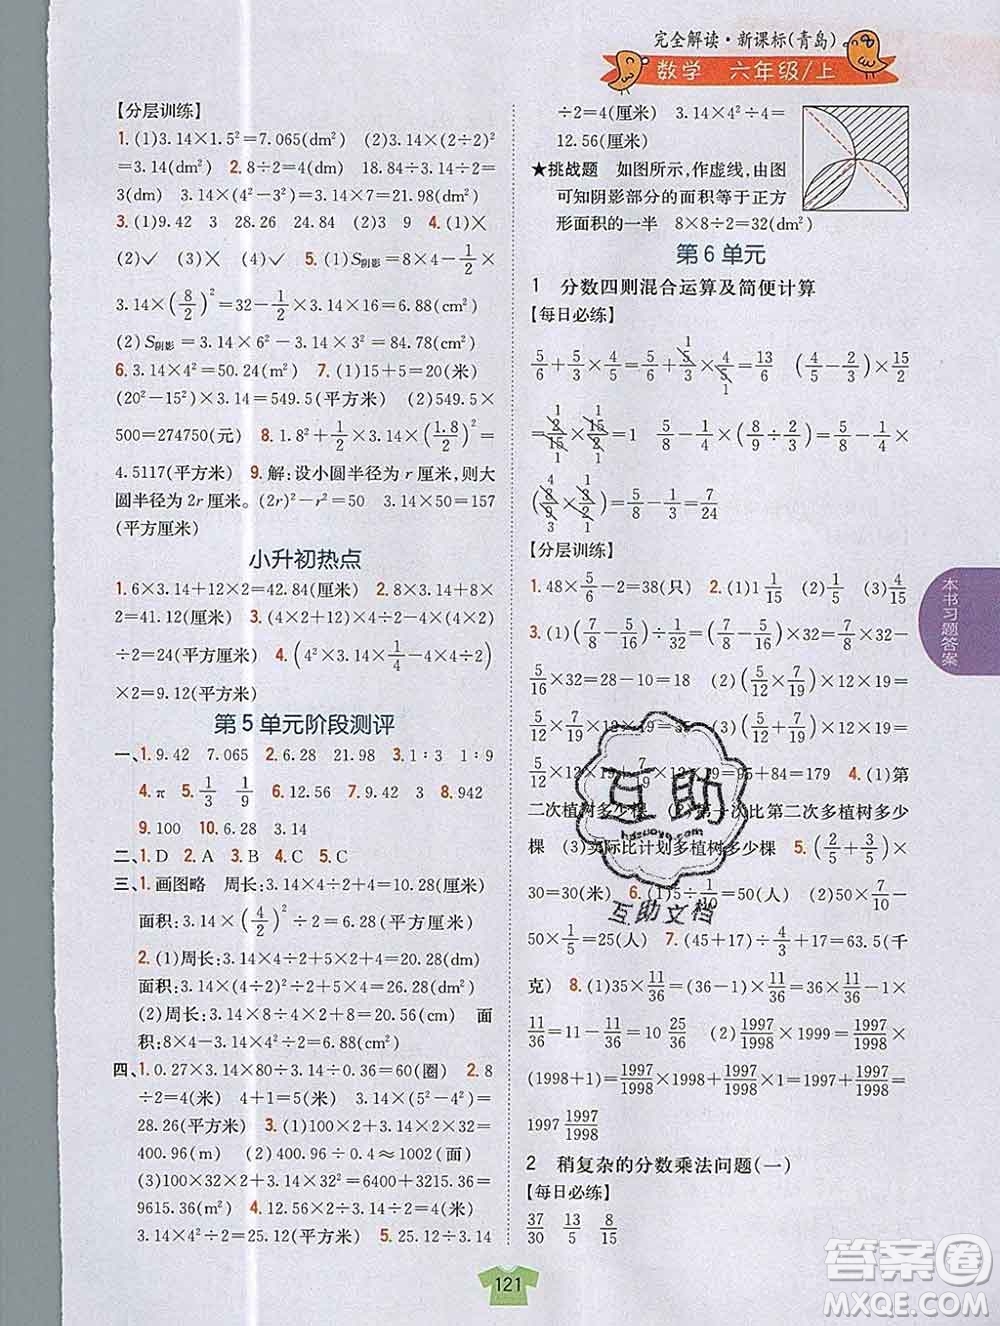 完全解读·新课标(青岛)
数学 六年级/上
【分层训练】
1. (1)3.14×1.5²=7.065(dm²) (2)3.14×(2÷2)²
=3.14(dm²) 2. 8÷2=4(dm) 18.84÷3.14÷2
=3(dm) 3.14×(4²-3²)=21.98(dm²)
3. (1)9.42 3 28.26 (2)3 9 4. (1)×
(2)✓ (3)✓ 5. (1)S阴影=8×4-1/2×
3.14×(8/2)²=32-1/2×3.14×4²=6.88(cm²)
(2)S阴影=3.14×(6²-3²)=84.78(cm²)
6. 3.14×4²=50.24(m²) 7. (1)15+5=20(米)
(20²-15²)×3.14=549.5(平方米) (2)549.5×
500=274750(元) 8. 1.8²+1/2×3.14×(1.8/2)²=
4.5117(平方米) 9. 解:设小圆半径为r厘米,则大
圆半径为2r厘米。(2r)²-r²=50 3.14×50=157
(平方厘米)
小升初热点
1. 6×3.14+12×2=42.84(厘米) 2. 8×3.14+8
×2=41.12(厘米) 3. (4×2+12)×4÷2-4×(4×2)
÷2=24(平方厘米) 4. (4²×3.14×1/4-4×4÷2)
×2=9.12(平方米)
第5单元阶段测评
一、1. 9.42 7.065 2. 6.28 21.98 3. 1:3 1:9
4. π 5. 1/3 1/9 6. 12.56 7. 9.42 8. 12.56
9. 100 10. 6.28 3.14
二、1. D 2. A 3. B 4. C 5. B
三、1. 画图略 周长:3.14×4÷2+4=10.28(厘米)
面积:3.14×(4/2)²÷2=6.28(平方厘米)
2. (1)周长:3.14×2×2÷4×2+2×2=10.28(dm)
面积:3.14×2²÷4×2=6.28(dm²)
(2)周长:3.14×8÷4×2+4×2=20.56(cm) 面
积:8×4-3.14×4²÷4×2=6.88(cm²)
四、1. 0.27×3.14×80÷3.14÷0.36=60(圈) 2. 8
÷2=4(米) 4+1=5(米) 3.14×(5²-4²)=
28.26(平方米) 3. (1)100×2+3.14×32×2=
400.96(m) (2)400.96÷0.4≈1002(面)
(3)100×32×2+3.14×32²=6400+3215.36=
9615.36(m²) 4. 3.14×4×2=25.12(平方米)
3.14×4²÷2=25.12(平方米) 5. 25.12÷3.14
÷2=4(厘米) 3.14×4²×4÷4=
12.56(厘米)
★挑战题 如图所示,作虚线,由图
可知阴影部分的面积等于正方
形面积的一半 8×8÷2=32(dm²)
第6单元
1 分数四则混合运算及简便计算
【每日必练】
5/6+3/5×5/3×4/5=5/6+3/5×5/3×4/5=13/6 (5/6÷5/3)×15/2
=5/6×3/5×15/2... 
【分层训练】
1. 48×5/6-2=38(只) 2. (1)1 (2)1/5 (3)4/19
3. (1)(7/8-5/16)÷1/32=(7/8-5/16)×32=7/8×32-
5/16×32=28-10=18
4. (1)第
二次植树多少棵 (2)第一次比第二次多植树多少
棵 (3)实际比计划多植树多少棵 5. (2/5+3/5)×
30=30(米) 6. (1)5÷1/10=50(人) (2)
50×1/5=25(人) 7. (45+17)÷
克) 8. (1)35×11/36=(36-1)×11/36=36×11/36-1×
11/36=11-11/36=10 25/36 (2)1997/1998×1999=1997/1998×
(1998+1)=1997/1998×1998+1997/1998×1=1997+1997/1998=
1997 1997/1998
2 稍复杂的分数乘法问题(一)
【每日必练】
37/30 13/5 8/5
本书习题答案
互助
hdzuoye.com
互助文档
121
答案圈
MXQE.COM